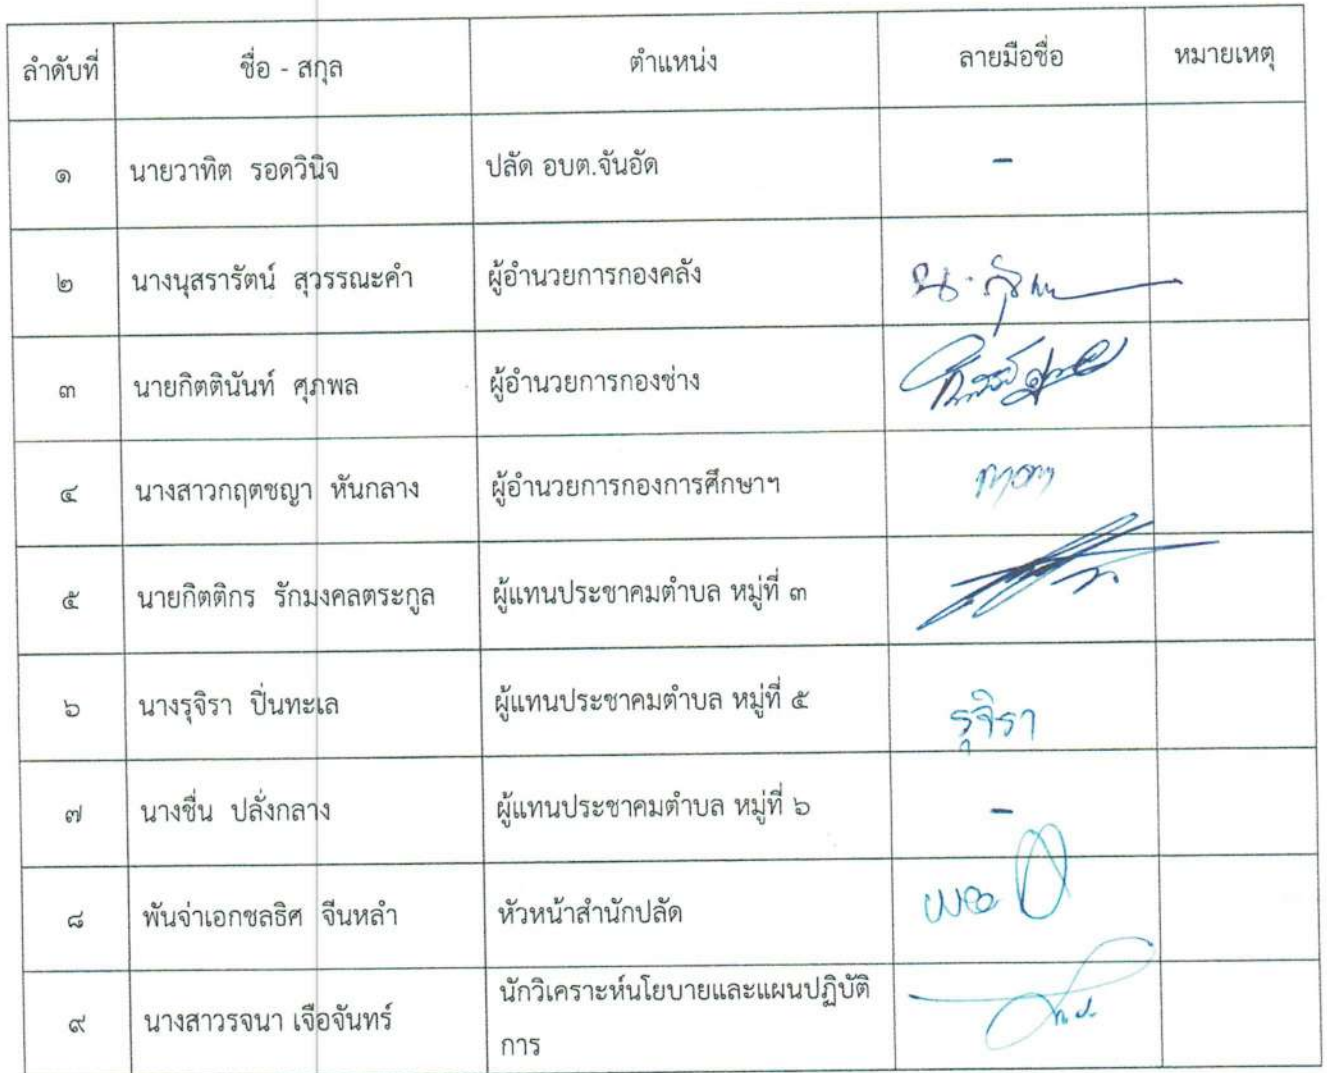 ลำดับที่ ชื่อ - สกุล ตำแหน่ง ลายมือชื่อ หมายเหตุ
๑ นายวาทิต รอดวินิจ ปลัด อบต.จันอัด -
๒ นางนุสรารัตน์ สุวรรณะคำ ผู้อำนวยการกองคลัง
๓ นายกิตตินันท์ ศุภพล ผู้อำนวยการกองช่าง
๔ นางสาวกฤตชญา หันกลาง ผู้อำนวยการกองการศึกษาฯ
๕ นายกิตติกร รักมงคลตระกูล ผู้แทนประชาคมตำบล หมู่ที่ ๓
๖ นางรุจิรา ปิ่นทะเล ผู้แทนประชาคมตำบล หมู่ที่ ๕ รุจิรา
๗ นางชื่น ปลั่งกลาง ผู้แทนประชาคมตำบล หมู่ที่ ๖ -
๘ พันจ่าเอกชลธิศ จีนหลำ หัวหน้าสำนักปลัด
๙ นางสาวรจนา เจือจันทร์ นักวิเคราะห์นโยบายและแผนปฏิบัติ
การ